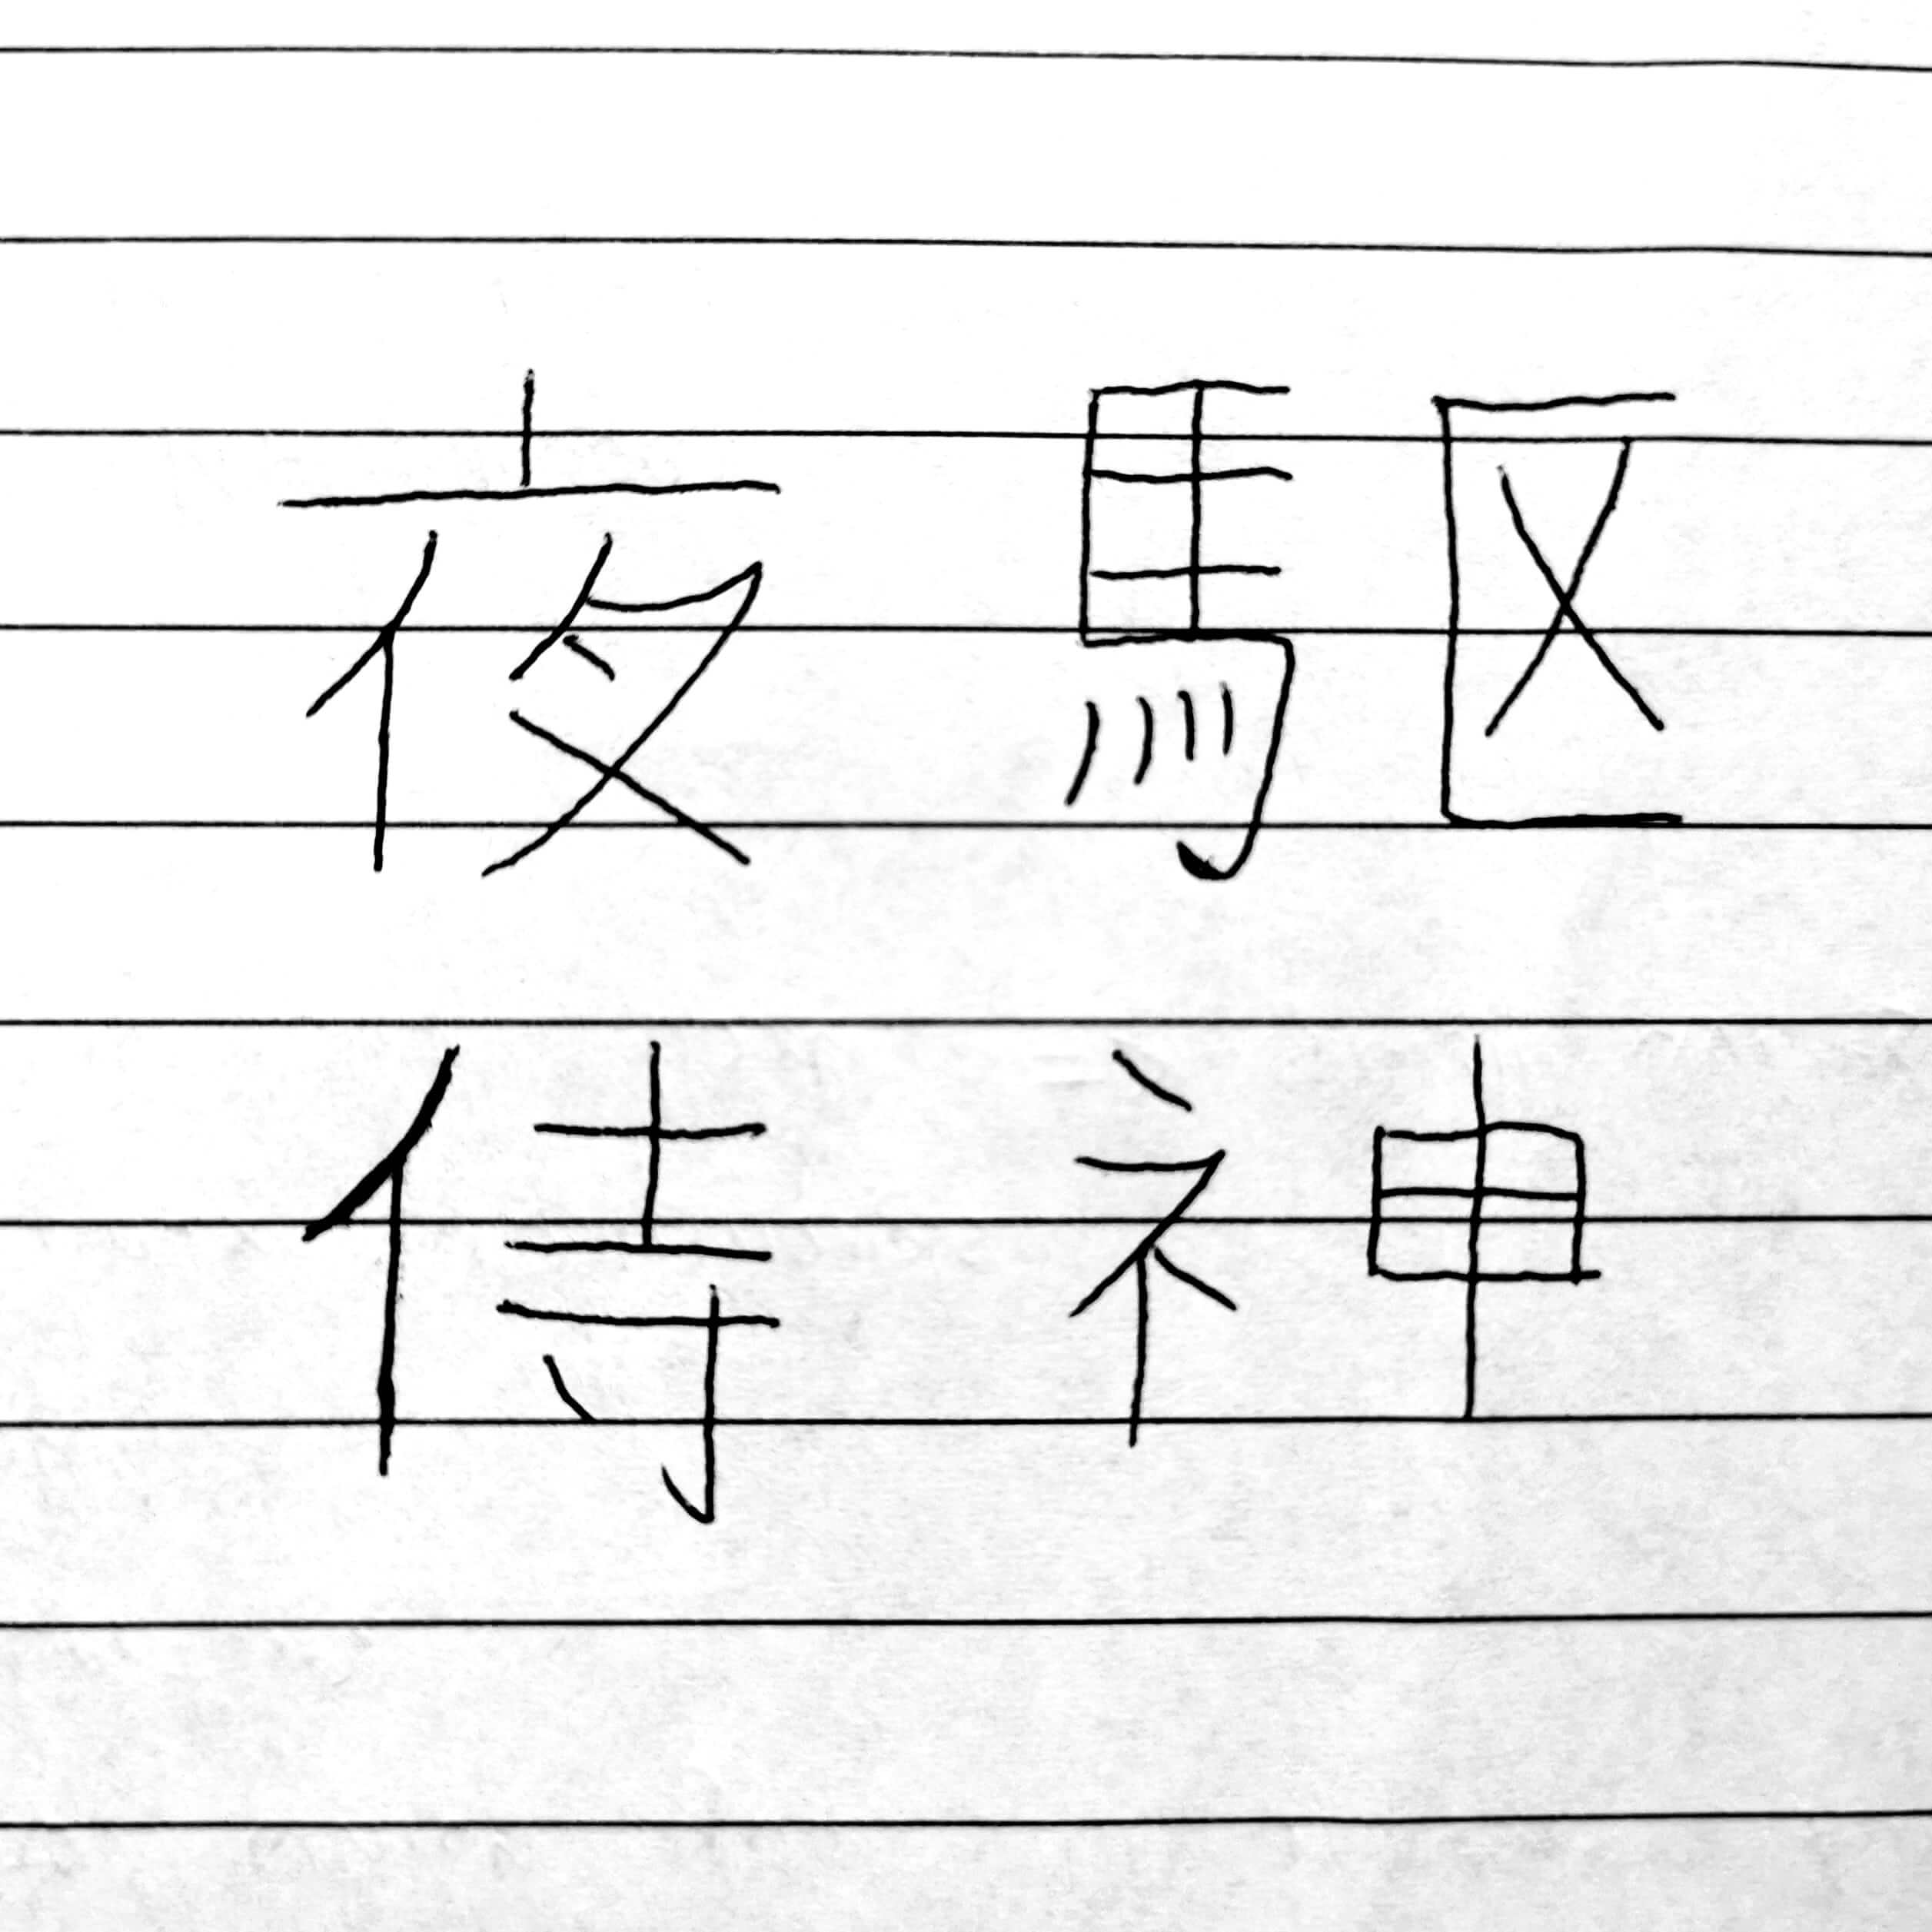 夜駆
侍神